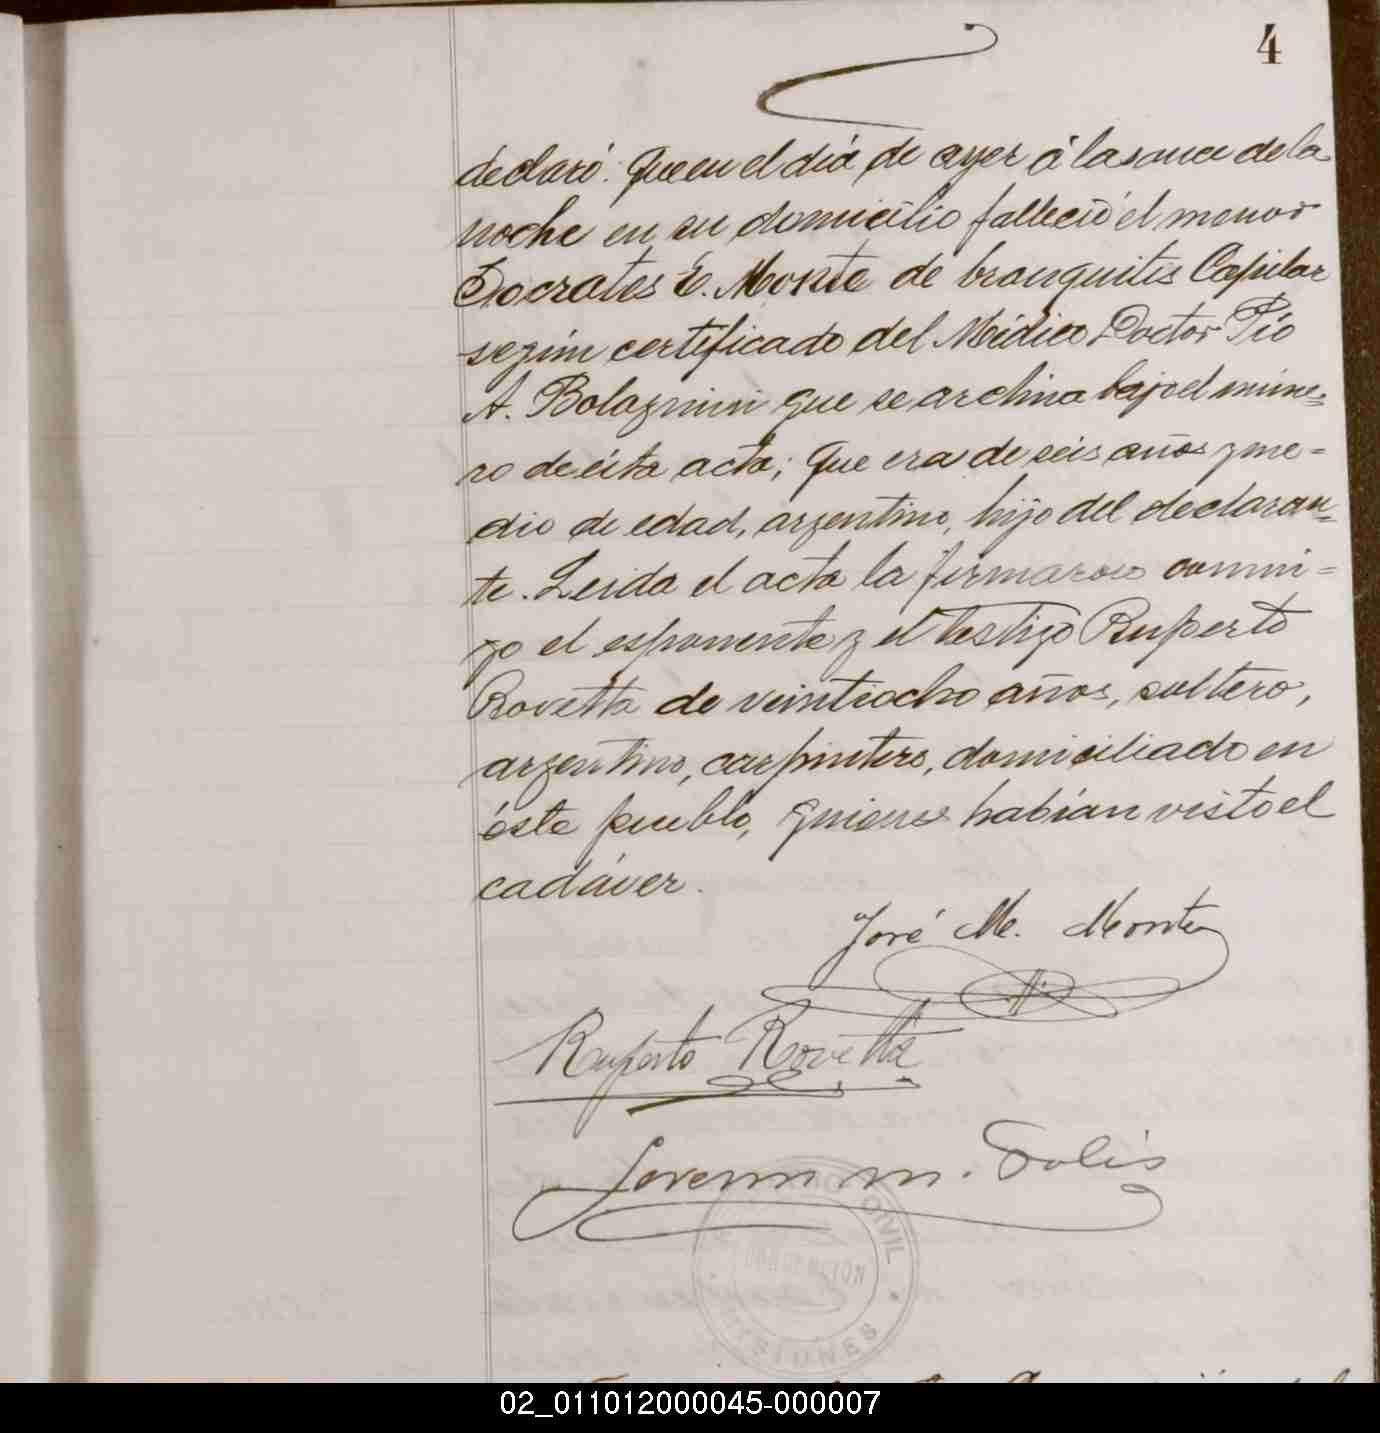 4
declaró: Que en el día de ayer á las once de la
noche en su domicilio falleció el menor
Socrates E. Monte de bronquitis Capilar
según certificado del Médico Doctor Pío
A. Bolognini que se archiva bajo el núme=
ro de ésta acta; que era de seis años y me=
dio de edad, argentino, hijo del declaran=
te. Leida el acta la firmaron conmi=
go el esponente y el testigo Ruperto
Rovetta de veintiocho años, soltero,
argentino, carpintero, domiciliado en
éste pueblo, quienes habían visto el
cadáver.
José M. Monte
Ruperto Rovetta
M. Solis
CIVIL
MISIONES
02_011012000045-000007